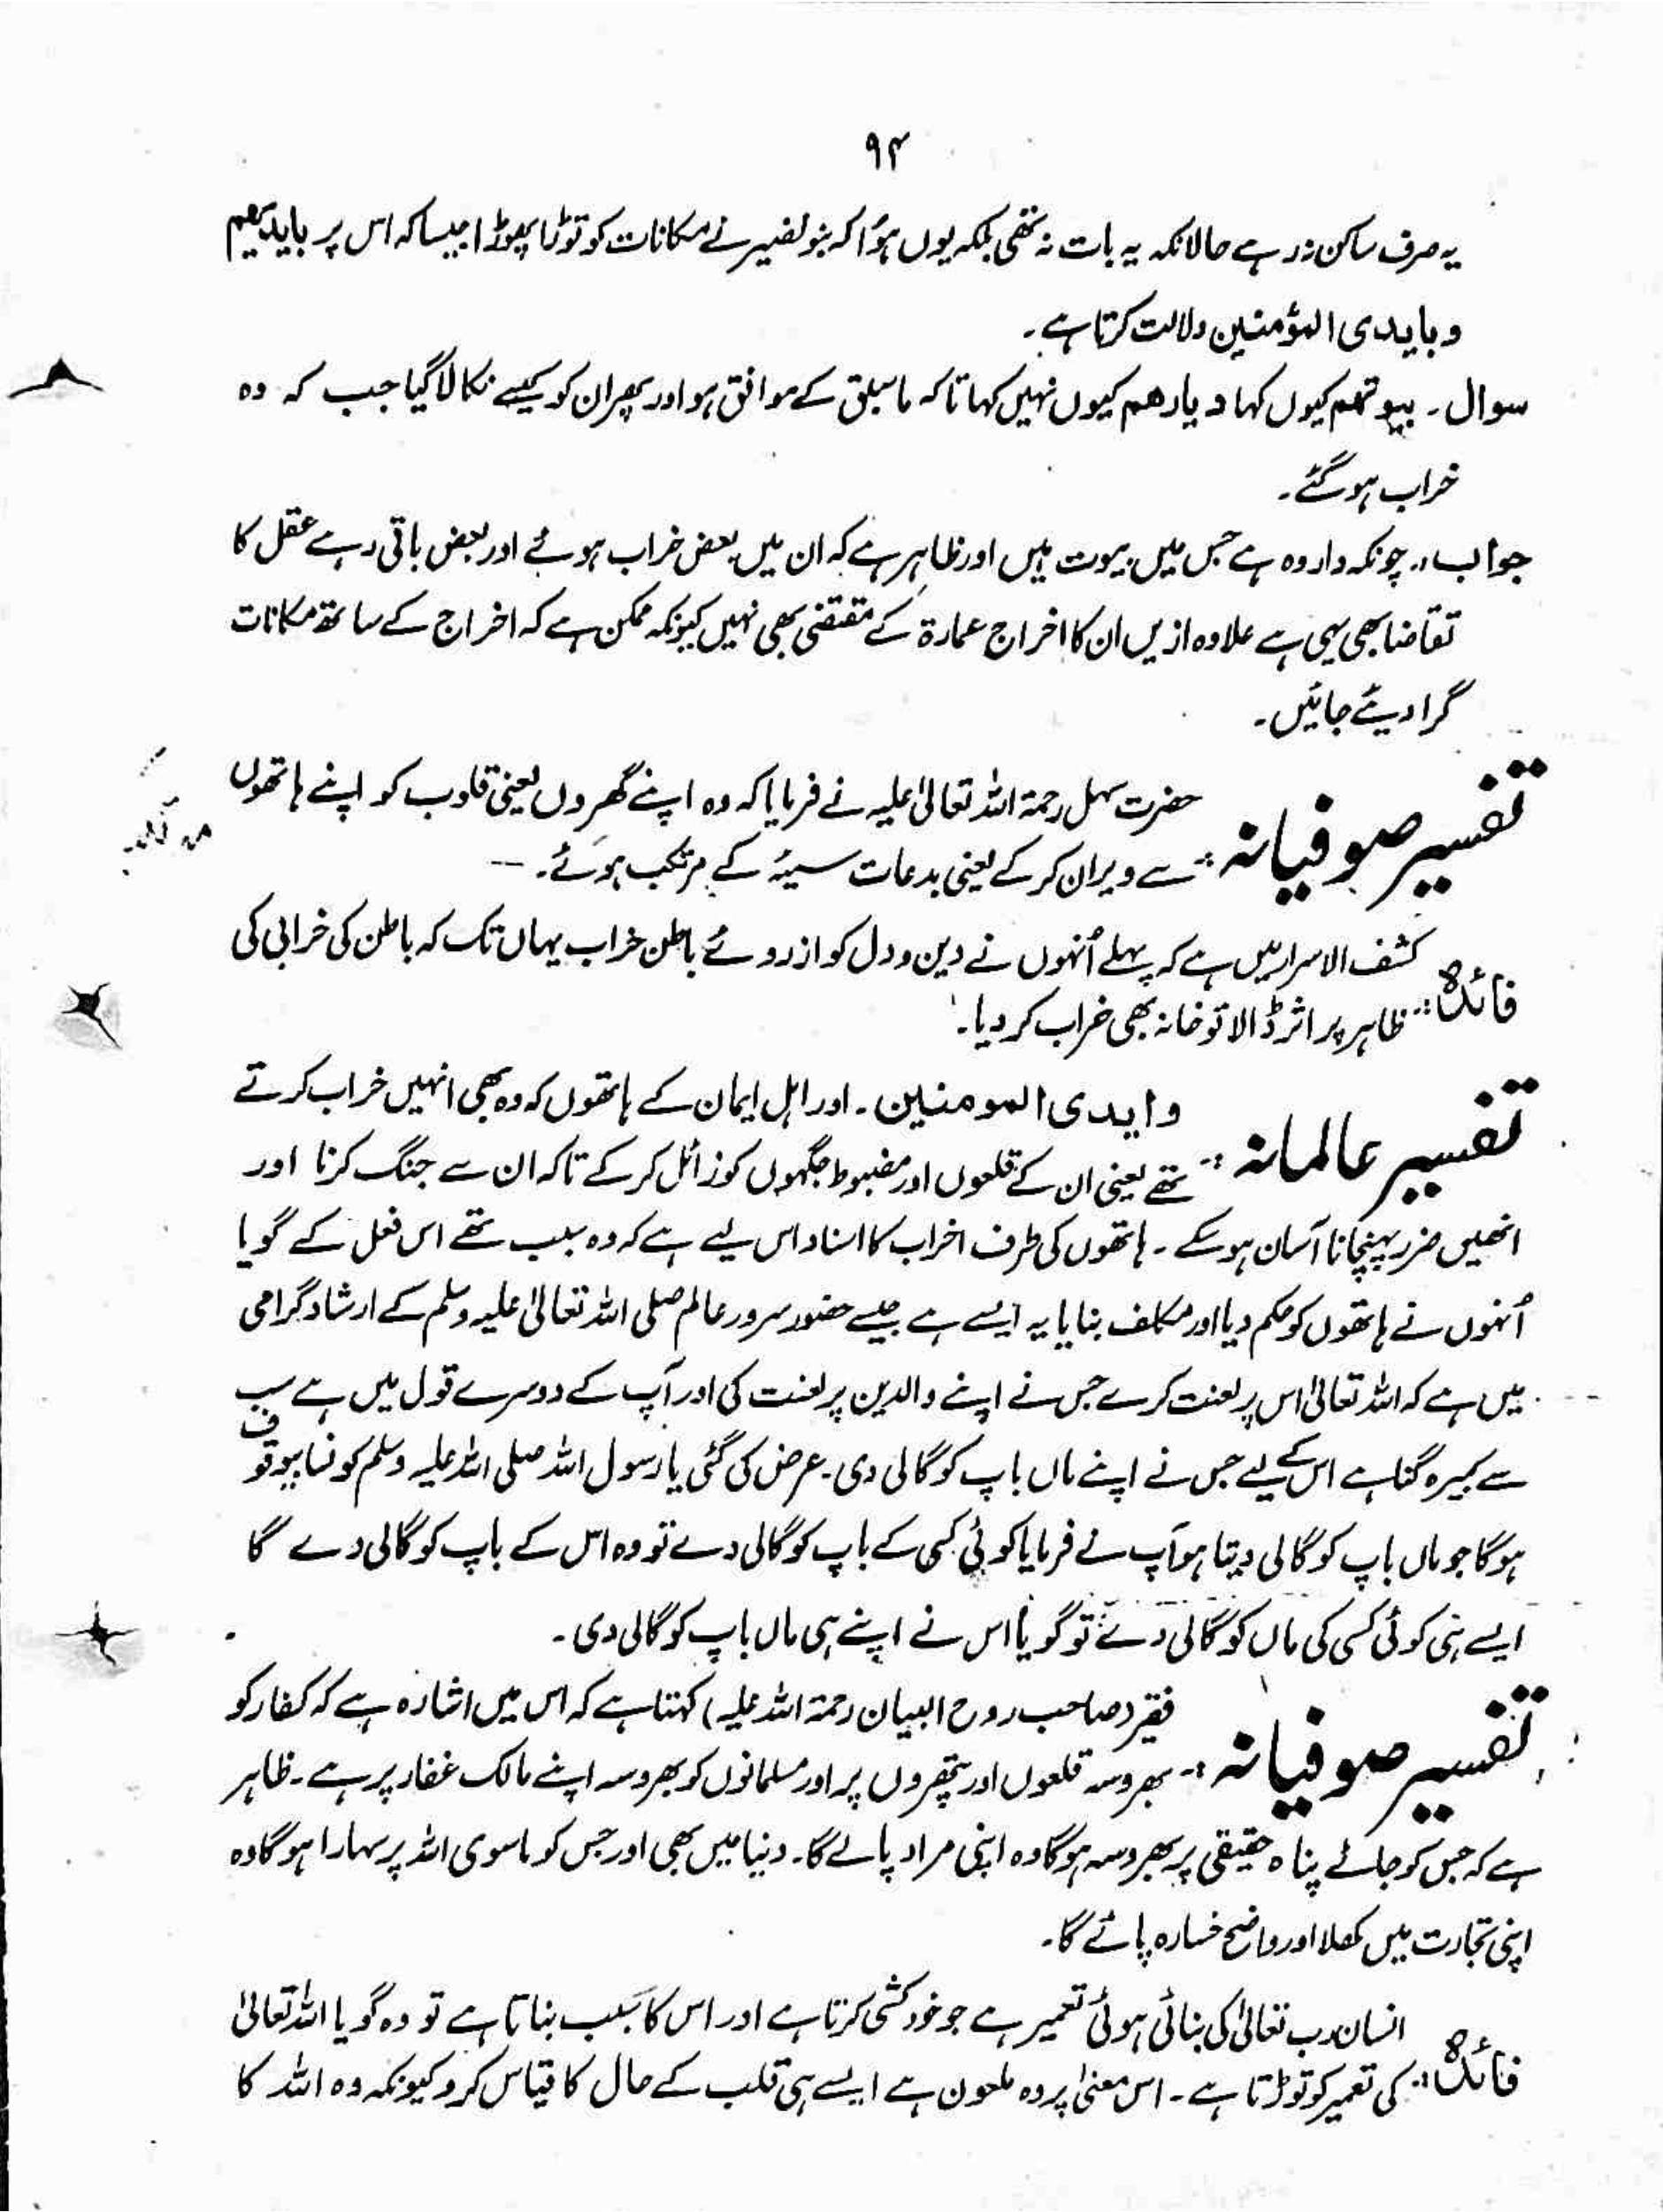 ۹۴
یہ صرف ساکن نہ رہے حالانکہ یہ بات نہ تھی بلکہ یوں ہؤا کہ بنو نضیر نے مکانات کو توڑا پھوڑا جیسا کہ اس پر بایدیھم
و بایدی المؤمنین دلالت کرتا ہے۔
سوال۔ بیوتھم کیوں کہا دیارھم کیوں نہیں کہا تاکہ ماسبق کے موافق ہو اور پھر ان کو کیسے نکالا گیا جب کہ وہ
خراب ہو گئے۔
جواب:۔ چونکہ دار وہ ہے جس میں بیوت ہیں اور ظاہر ہے کہ ان میں بعض خراب ہوئے اور بعض باقی رہے عقل کا
تقاضا بھی یہی ہے علاوہ ازیں ان کا اخراج عمارۃ کے مقتضی بھی نہیں کیونکہ ممکن ہے کہ اخراج کے ساتھ مکانات
گرا دیئے جائیں۔
تفسیر صوفیانہ:۔ حضرت سہل رحمۃ اللہ تعالیٰ علیہ نے فرمایا کہ وہ اپنے گھروں یعنی قلوب کو اپنے ہاتھوں
سے ویران کر کے یعنی بدعات سیئہ کے مرتکب ہوئے۔
فائدہ:۔ کشف الاسرار میں ہے کہ پہلے اُنہوں نے دین و دل کو از روئے باطن خراب یہاں تک کہ باطن کی خرابی کی
ظاہر پر اثر ڈالا تو خانہ بھی خراب کر دیا۔
تفسیر عالمانہ:۔ وایدی المومنین۔ اور اہل ایمان کے ہاتھوں کہ وہ بھی انہیں خراب کرتے
تھے یعنی ان کے قلعوں اور مضبوط جگہوں کو زائل کر کے تاکہ ان سے جنگ کرنا اور
انھیں ضرر پہنچانا آسان ہو سکے۔ ہاتھوں کی طرف اخراب کا اسناد اس لیے ہے کہ وہ سبب تھے اس فعل کے گویا
اُنہوں نے ہاتھوں کو حکم دیا اور مکلف بنایا یہ ایسے ہے جیسے حضور سرور عالم صلی اللہ تعالیٰ علیہ وسلم کے ارشاد گرامی
میں ہے کہ اللہ تعالیٰ اس پر لعنت کرے جس نے اپنے والدین پر لعنت کی اور آپ کے دوسرے قول میں ہے سب
سے کبیرہ گناہے اس کے لیے جس نے اپنے ماں باپ کو گالی دی۔ عرض کی گئی یا رسول اللہ صلی اللہ علیہ وسلم کونسا بیوقوف
ہوگا جو ماں باپ کو گالی دیتا ہو آپ نے فرمایا کوئی کسی کے باپ کو گالی دے تو وہ اس کے باپ کو گالی دے گا
ایسے ہی کوئی کسی کی ماں کو گالی دے تو گویا اس نے اپنے ہی ماں باپ کو گالی دی۔
تفسیر صوفیانہ:۔ فقیر (صاحب روح البیان رحمۃ اللہ علیہ) کہتا ہے کہ اس میں اشارہ ہے کہ کفار کو
بھروسہ قلعوں اور پتھروں پر اور مسلمانوں کو بھروسہ اپنے مالک غفار پر ہے۔ ظاہر
ہے کہ جس کو جائے پناہ حقیقی پر بھروسہ ہوگا وہ اپنی مراد پالے گا۔ دنیا میں بھی اور جس کو ماسوی اللہ پر سہارا ہوگا وہ
اپنی تجارت میں کھلا اور واضح خسارہ پائے گا۔
فائدہ:۔ انسان رب تعالیٰ کی بنائی ہوئی تعمیر ہے جو خود کشی کرتا ہے اور اس کا سبب بناتا ہے تو وہ گویا اللہ تعالیٰ
کی تعمیر کو توڑتا ہے۔ اس معنیٰ پر وہ ملعون ہے ایسے ہی قلب کے حال کا قیاس کرو کیونکہ وہ اللہ کا